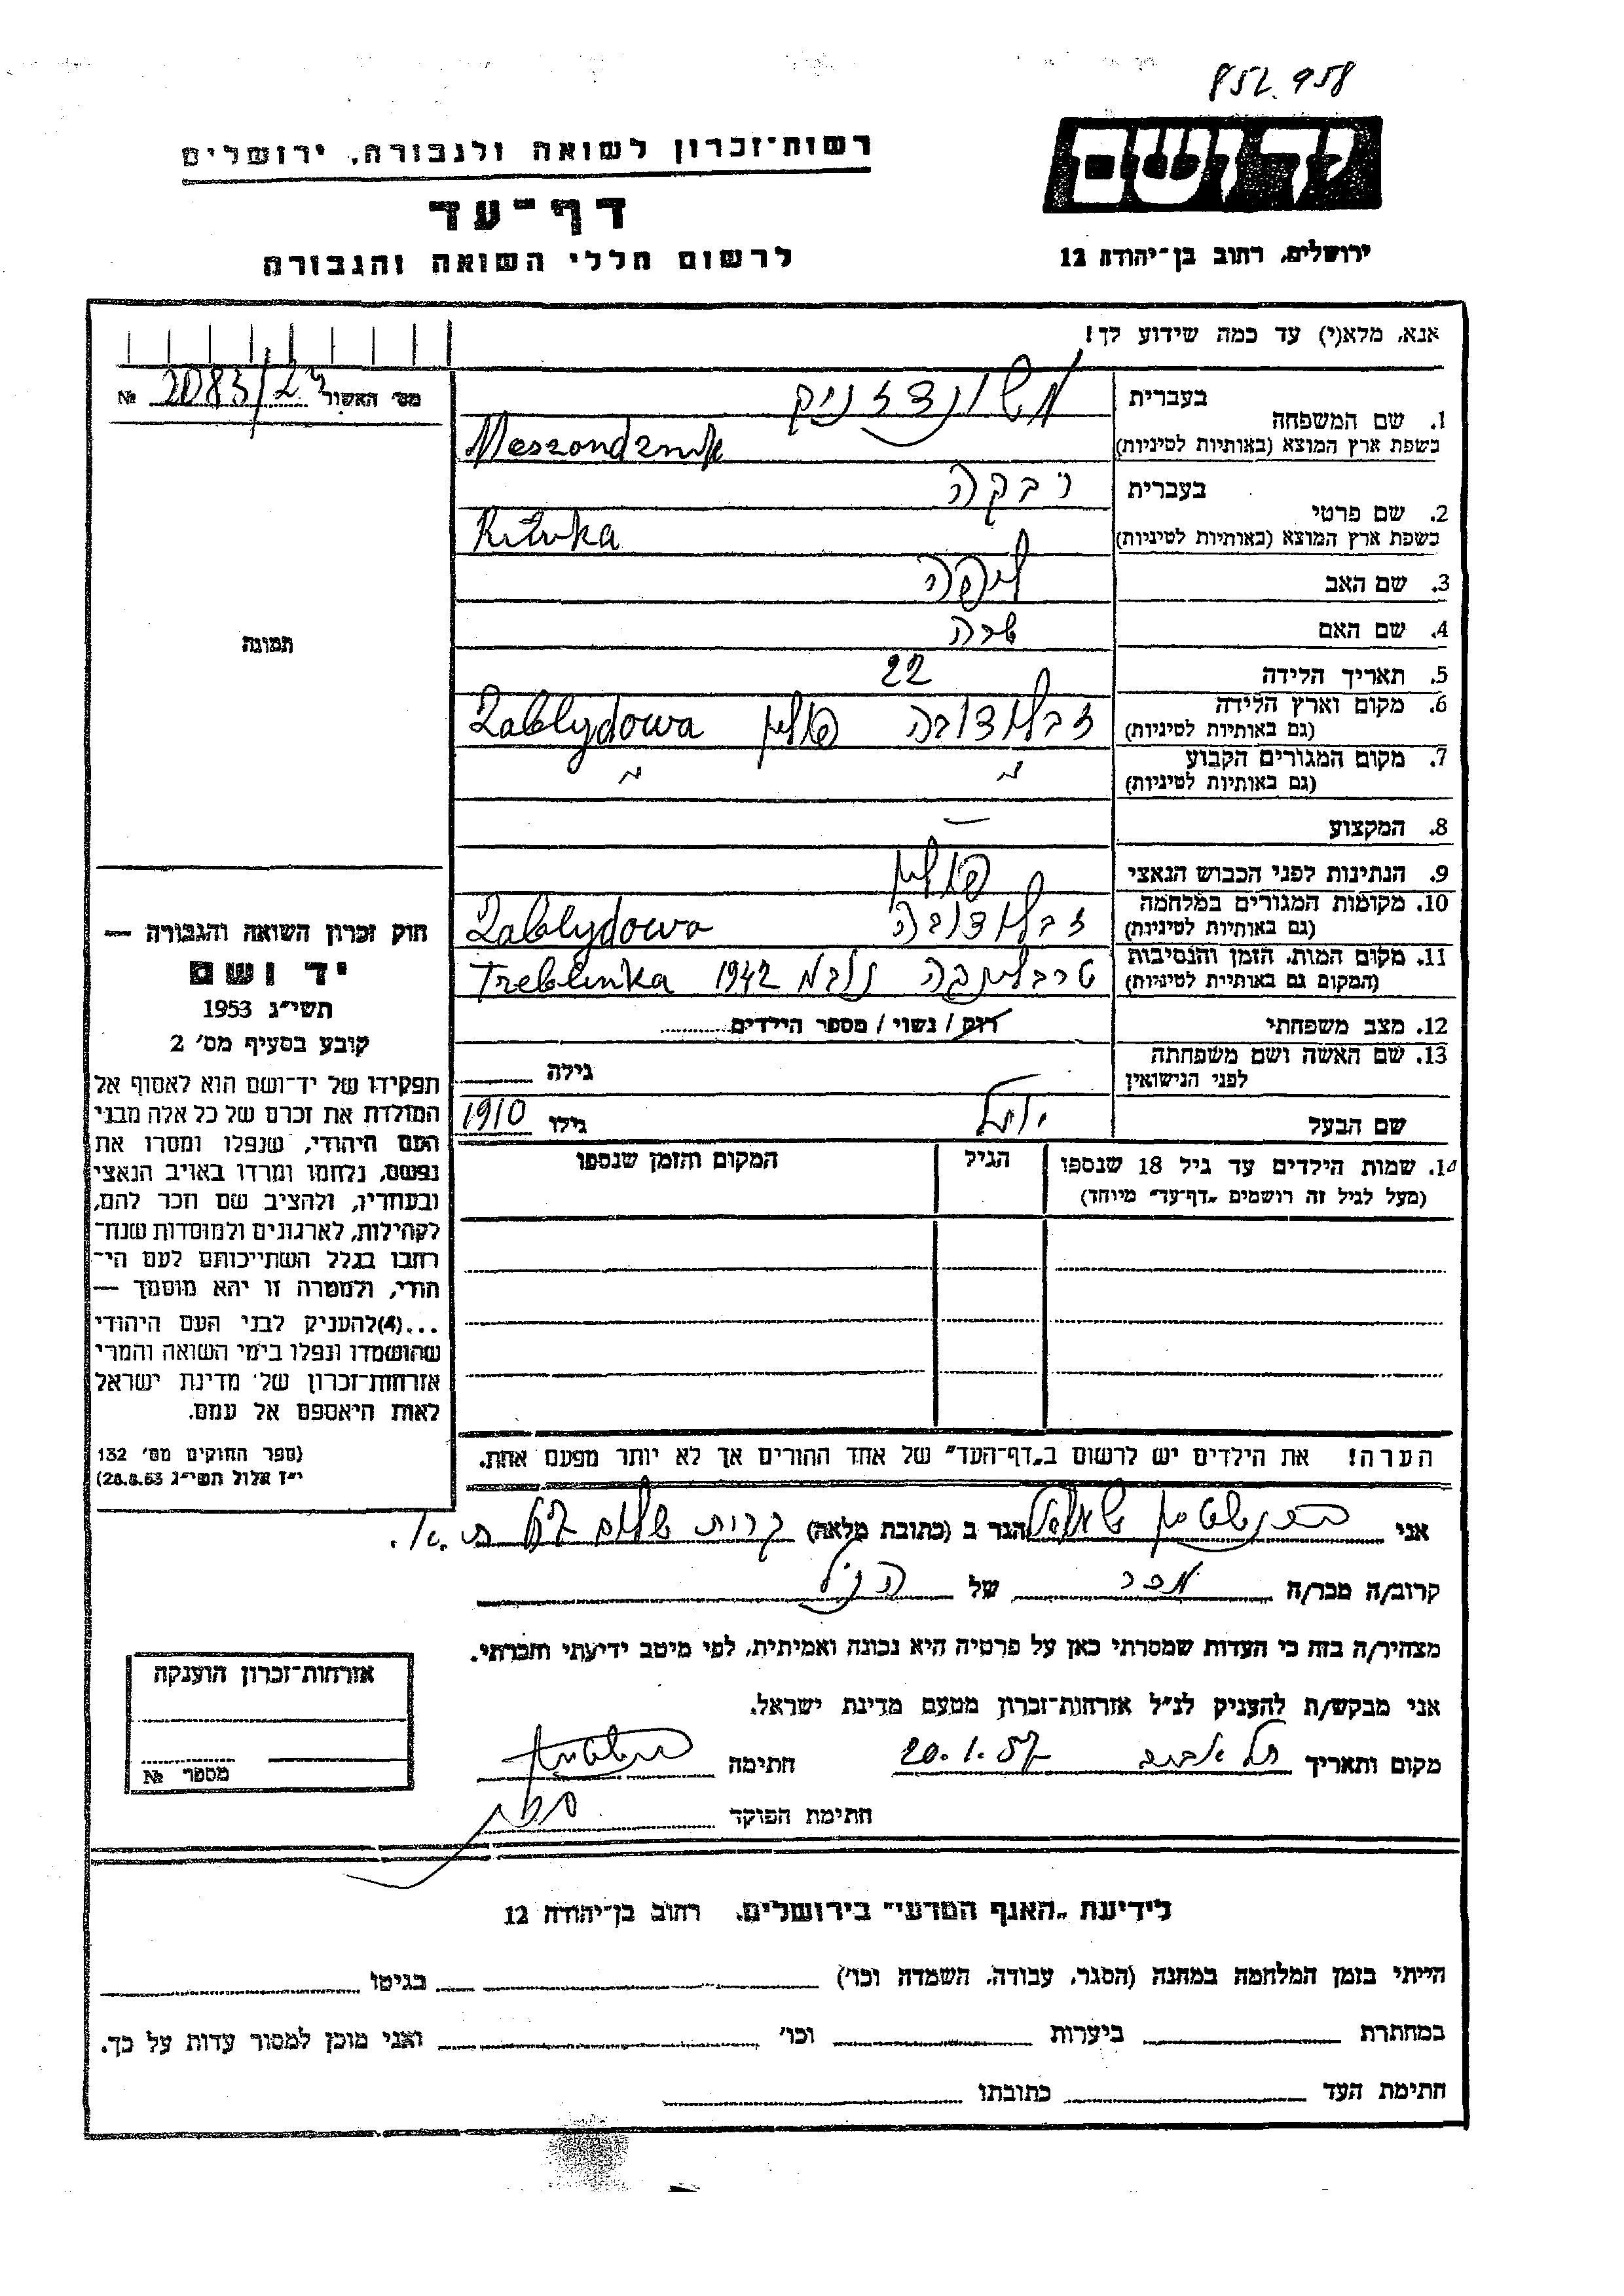 852.958
יד ושם
רשות־זכרון לשואה ולגבורה, ירושלים
דף־עד
לרשום חללי השואה והגבורה
ירושלים, רחוב בן־יהודה 12
אנא, מלא(י) עד כמה שידוע לך!
מס׳ האשור 2083/23 №
1. שם המשפחה
בעברית משונדזניק
בשפת ארץ המוצא (באותיות לטיניות) Meszondznik
2. שם פרטי
בעברית רבקה
בשפת ארץ המוצא (באותיות לטיניות)
3. שם האב
4. שם האם שרה
5. תאריך הלידה 22
6. מקום וארץ הלידה זבלודובה פולין Zablydowa
(גם באותיות לטיניות)
7. מקום המגורים הקבוע
(גם באותיות לטיניות)
8. המקצוע —
9. הנתינות לפני הכבוש הנאצי פולין
10. מקומות המגורים במלחמה זבלודובה Zablydowa
(גם באותיות לטיניות)
11. מקום המות, הזמן והנסיבות טרבלינקה 1942 Treblinka
(המקום גם באותיית לטיניות)
12. מצב משפחתי רוק / נשוי / מספר הילדים
13. שם האשה ושם משפחתה
לפני הנישואין גילה
שם הבעל גילו 1910
14. שמות הילדים עד גיל 18 שנספו הגיל המקום והזמן שנספו
(מעל לגיל זה רושמים „דף־עד״ מיוחד)
הערה! את הילדים יש לרשום ב„דף־העד״ של אחד ההורים אך לא יותר מפעם אחת.
תמונה
חוק זכרון השואה והגבורה —
יד ושם
תשי״ג 1953
קובע בסעיף מס׳ 2
תפקידו של יד־ושם הוא לאסוף אל
המולדת את זכרם של כל אלה מבני
העם היהודי, שנפלו ומסרו את
נפשם, נלחמו ומרדו באויב הנאצי
ובעוזריו, ולהציב שם וזכר להם,
לקהילות, לארגונים ולמוסדות שנח־
רחבו בגלל השתייכותם לעם הי־
הודי, ולמטרה זו יהא מוסמך —
...(4)להעניק לבני העם היהודי
שהושמדו ונפלו בימי השואה והמרי
אזרחות־זכרון של מדינת ישראל
לאות היאספם אל עמם.
(ספר החוקים מס׳ 132
י״ז אלול תשי״ג 28.8.53)
אני שמואל הגר ב (כתובת מלאה) קרית שלום
קרוב/ה מכר/ה מכר של הנ״ל
מצהיר/ה בזה כי העדות שמסרתי כאן על פרטיה היא נכונה ואמיתית, לפי מיטב ידיעתי והכרתי.
אני מבקש/ת להעניק לנ״ל אזרחות־זכרון מטעם מדינת ישראל.
מקום ותאריך תל אביב 20.1.57 חתימה
חתימת הפוקד
אזרחות־זכרון הוענקה
מספר №
לידיעת „האגף המדעי״ בירושלים, רחוב בן־יהודה 12
הייתי בזמן המלחמה במחנה (הסגר, עבודה, השמדה וכו׳) בגיטו
במחתרת ביערות וכו׳ ואני מוכן למסור עדות על כך.
חתימת העד כתובתו